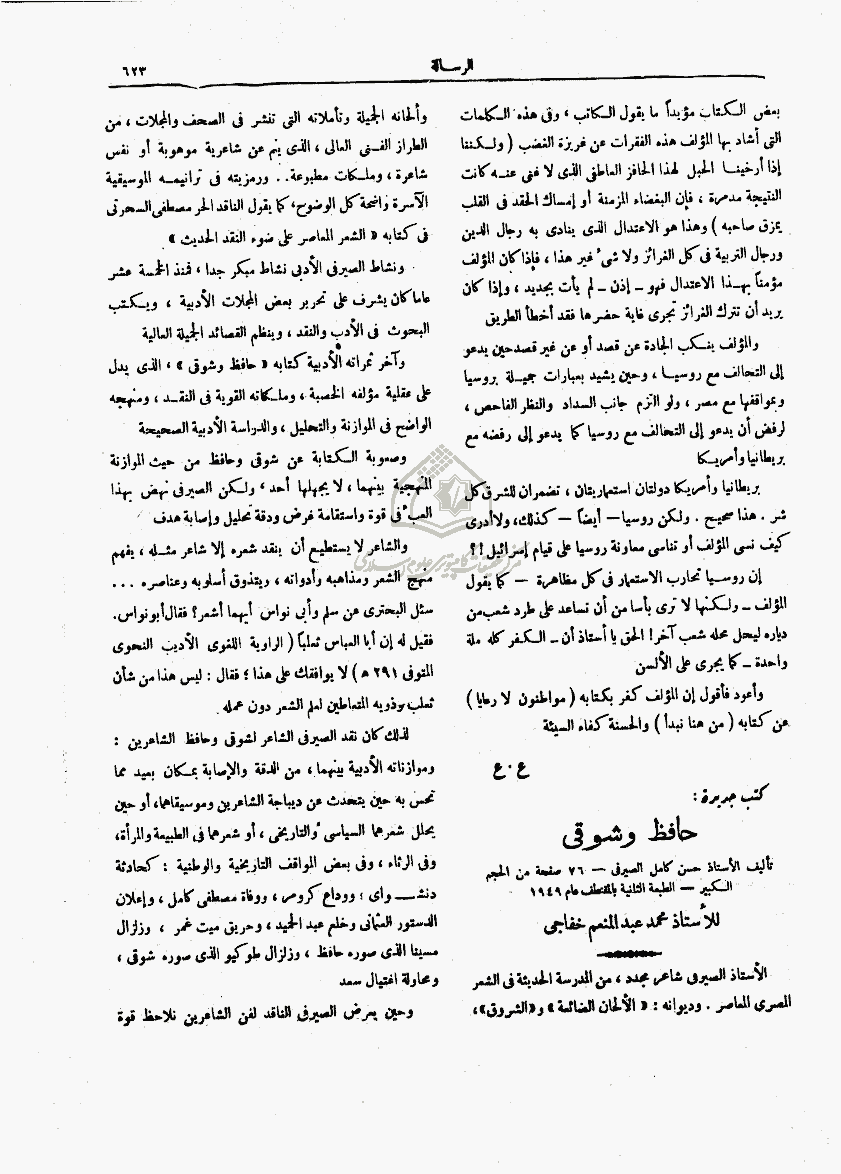 الرسالة
٦٢٣
بعض الكتاب مؤيداً ما يقول الكاتب ، وفى هذه الكلمات
التى أشاد بها المؤلف هذه الفقرات عن غريزة الغضب ( ولكننا
إذا أرخينا الحبل لهذا الحافز العاطفى الذى لا غنى عنه كانت
النتيجة مدمرة ، فإن البغضاء المزمنة أو إمساك الحقد فى القلب
يمزق صاحبه ) وهذا هو الاعتدال الذى ينادى به رجال الدين
ورجال التربية فى كل الغرائز ولا شىء غير هذا ، فإذا كان المؤلف
مؤمناً بهذا الاعتدال فهو – إذن – لم يأت بجديد ، وإذا كان
يريد أن تترك الغرائز تجرى غاية حضرها فقد أخطأ الطريق
والمؤلف يتنكب الجادة عن قصد أو عن غير قصد حين يدعو
إلى التحالف مع روسيا ، وحين يشيد بعبارات جميلة بروسيا
وبمواقفها مع مصر ، ولو التزم جانب السداد والنظر الفاحص ،
لرفض أن يدعو إلى التحالف مع روسيا كما يدعو إلى رفضه مع
بريطانيا وأمريكا
بريطانيا وأمريكا دولتان استعماريتان ، تضمران للشرق كل
شر . هذا صحيح . ولكن روسيا – أيضاً – كذلك، ولا أدرى
كيف نسى المؤلف أو تناسى معاونة روسيا على قيام إسرائيل !؟
إن روسيا تحارب الاستعمار فى كل مظاهره – كما يقول
المؤلف – ولكنها لا ترى بأسا من أن تساعد على طرد شعب من
دياره ليحل محله شعب آخر! الحق يا أستاذ أن – الكفر كله ملة
واحدة – كما يجرى على الألسن
وأعود فأقول إن المؤلف كفر بكتابه ( مواطنون لا رعايا )
عن كتابه ( من هنا نبدأ ) والحسنة كفاء السيئة
ع . ع
كتب جديدة :
حافظ وشوقى
تأليف الأستاذ حسن كامل الصيرفى – ٧٦ صفحة من الحجم
الكبير – الطبعة الثانية بالمقتطف عام ١٩٤٩
للأستاذ محمد عبد المنعم خفاجى
الأستاذ الصيرفى شاعر مجدد ، من المدرسة الحديثة فى الشعر
المصرى المعاصر . وديوانه : « الألحان الضائعة » و«الشروق»،
وألحانه الجميلة وتأملاته التى تنشر فى الصحف والمجلات ، من
الطراز الفنى العالى ، الذى ينم عن شاعرية موهوبة أو نفس
شاعرة ، وملكات مطبوعة.. ورمزيته فى ترانيمه الموسيقية
الآسرة واضحة كل الوضوح، كما يقول الناقد الحر مصطفى السحرتى
فى كتابه « الشعر المعاصر على ضوء النقد الحديث »
ونشاط الصيرفى الأدبى نشاط مبكر جدا ، فمنذ الخمسة عشر
عاما كان يشرف على تحرير بعض المجلات الأدبية ، ويكتب
البحوث فى الأدب والنقد ، وينظم القصائد الجميلة العالية
وآخر ثمراته الأدبية كتابه « حافظ وشوقى » ، الذى يدل
على عقلية مؤلفه الخصبة ، وملكاته القوية فى النقد ، ومنهجه
الواضح فى الموازنة والتحليل ، والدراسة الأدبية الصحيحة
وصعوبة الكتابة عن شوقى وحافظ من حيث الموازنة
المنهجية بينهما ، لا يجهلها أحد ، ولكن الصيرفى نهض بهذا
العبء فى قوة واستقامة غرض ودقة تحليل وإصابة هدف
والشاعر لا يستطيع أن ينقد شعره إلا شاعر مثله ، يفهم
منهج الشعر ومذاهبه وأدواته ، ويتذوق أسلوبه وعناصره ...
سئل البحترى عن مسلم وأبى نواس أيهما أشعر؟ فقال أبو نواس.
فقيل له إن أبا العباس ثعلباً ( الراوية اللغوى الأديب النحوى
المتوفى ٢٩١ ه ) لا يوافقك على هذا ؛ فقال : ليس هذا من شأن
ثعلب وذويه المتعاطين لعلم الشعر دون عمله
لذلك كان نقد الصيرفى الشاعر لشوقى وحافظ الشاعرين :
وموازناته الأدبية بينهما ، من الدقة والإصابة بمكان بعيد مما
تحس به حين يتحدث عن ديباجة الشاعرين وموسيقاهما، أو حين
يحلل شعرهما السياسى والتاريخى ، أو شعرهما فى الطبيعة والمرأة،
وفى الرثاء ، وفى بعض المواقف التاريخية والوطنية : كحادثة
دنشواى ؛ ووداع كرومر ، ووفاة مصطفى كامل ، وإعلان
الدستور العثمانى وخلع عبد الحميد ، وحريق ميت غمر ، وزلزال
مسينا الذى صوره حافظ ، وزلزال طوكيو الذى صوره شوقى ،
ومحاولة اغتيال سعد
وحين يعرض الصيرفى الناقد لفن الشاعرين نلاحظ قوة